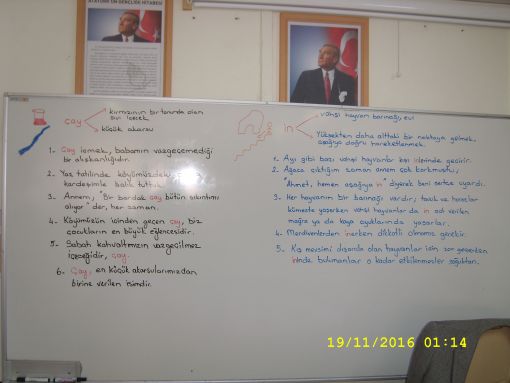 ATATÜRK'ÜN GENÇLİĞE HİTABESİ
çay
kırmızının bir tonunda olan
sıvı içecek
küçük akarsu
1- Çay içmek, babamın vazgeçemediği
bir alışkanlığıdır.
2- Yaz tatilinde köyümüzdeki
kardeşimle balık tuttuk.
3- Annem; "Bir bardak çay bütün sıkıntımı
alıyor" der, her zaman.
4- Köyümüzün içinden geçen çay, biz
çocukların en büyük eğlencesidir.
5- Sabah kahvaltımızın vazgeçilmez
içeceğidir, çay.
6- Çay, en küçük akarsularımızdan
birine verilen isimdir.
in
vahşi hayvan barınağı, evi
Yüksekten daha alttaki bir noktaya gelmek,
aşağıya doğru hareketlenmek.
1- Ayı gibi bazı vahşi hayvanlar kışı inlerinde geçirir.
2- Ağaca çıktığım zaman annem çok korkmuştu;
"Ahmet, hemen aşağıya in" diyerek beni sertçe uyardı.
3- Her hayvanın bir barınağı vardır; tavuk ve horozlar
kümeste yaşarken vahşi hayvanlar da in adı verilen
mağra ya da kaya oyuklarında yaşarlar.
4- Merdivenlerden inerken dikkatli olmamız gerekir.
5- Kış mevsimi dışarıda olan hayvanlar için zor geçerken
ininde bulunanlar o kadar etkilenmezler soğuktan.
19/11/2016 01:14